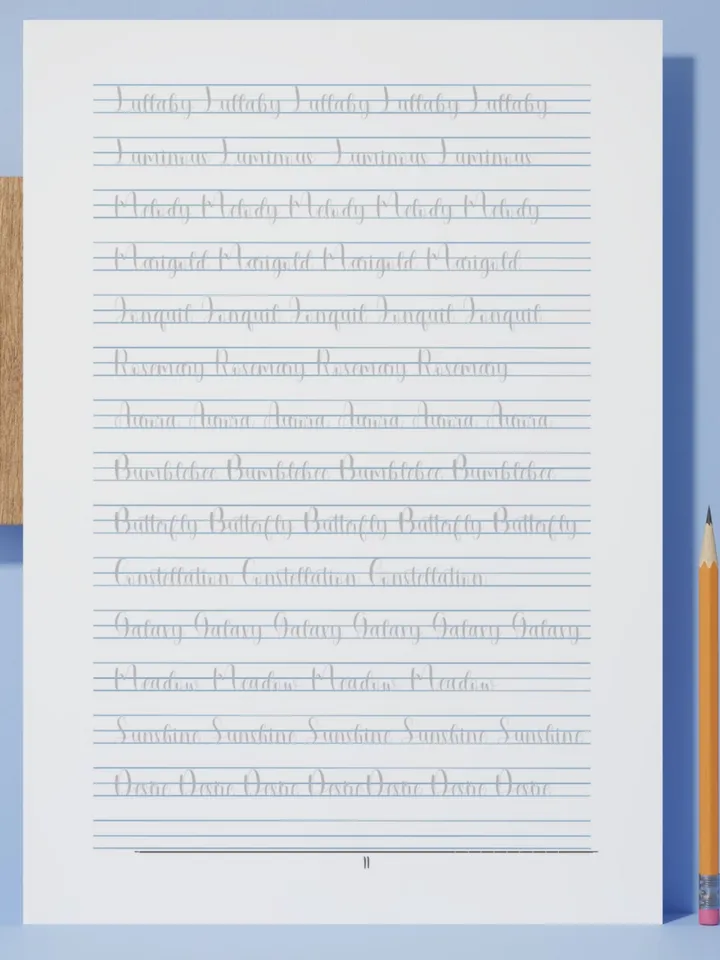 Lullaby Lullaby Lullaby Lullaby Lullaby
Luminous Luminous Luminous Luminous
Melody Melody Melody Melody Melody
Marigold Marigold Marigold Marigold
Jonquil Jonquil Jonquil Jonquil Jonquil
Rosemary Rosemary Rosemary Rosemary
Aurora Aurora Aurora Aurora Aurora Aurora
Bumblebee Bumblebee Bumblebee Bumblebee
Butterfly Butterfly Butterfly Butterfly Butterfly
Constellation Constellation Constellation
Galaxy Galaxy Galaxy Galaxy Galaxy Galaxy
Meadow Meadow Meadow Meadow
Sunshine Sunshine Sunshine Sunshine Sunshine
Desire Desire Desire Desire Desire Desire Desire
11